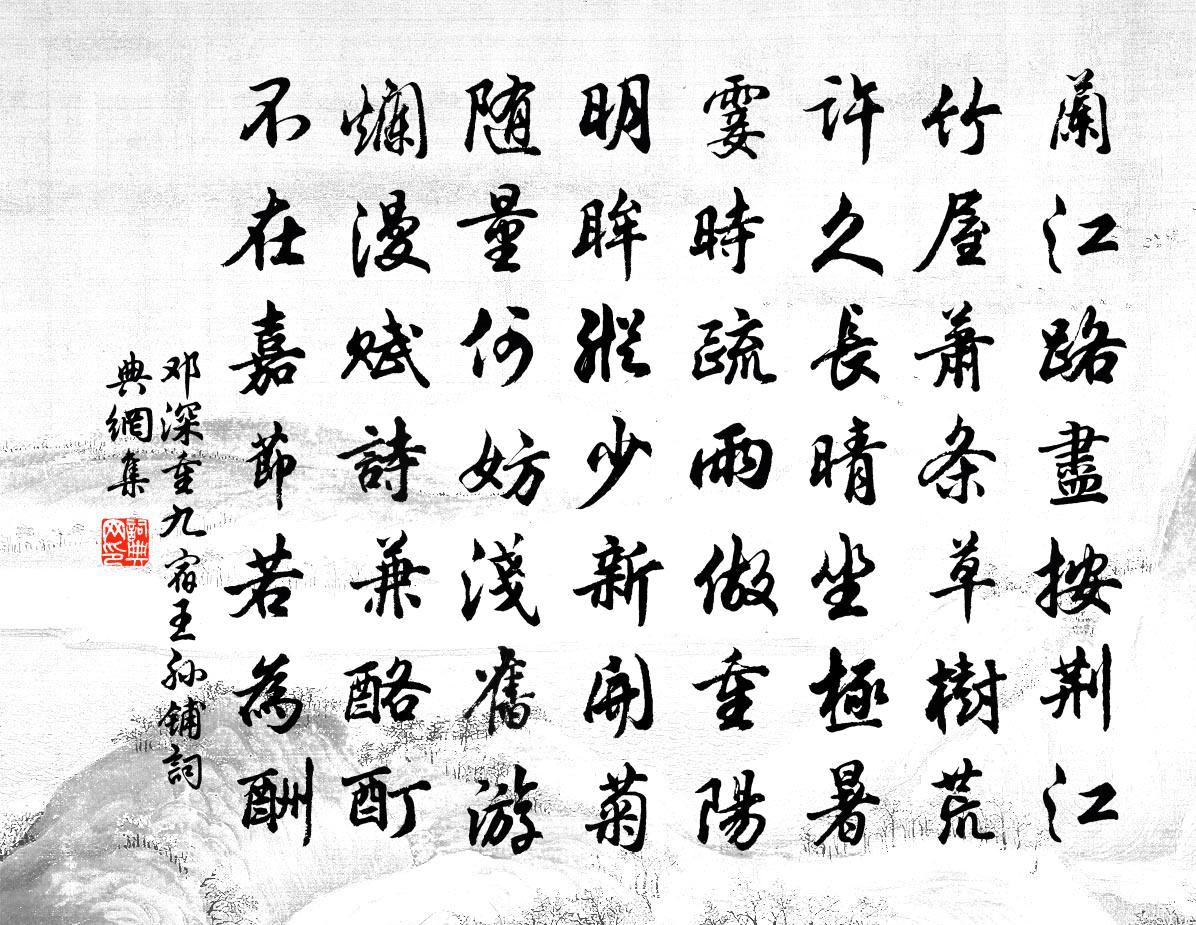 蘭江路盡按荆江
竹屋蕭条草樹荒
許久長晴坐極暑
霎時疏雨做重陽
明眸縱少新開菊
随量何妨淺舊游
爛漫賦詩兼酩酊
不在嘉節若為酬
邓深重九宿王孙铺詞
典網集
詞典
网印